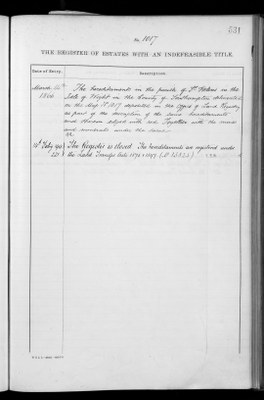 631
No. 1017
THE REGISTER OF ESTATES WITH AN INDEFEASIBLE TITLE.
Date of Entry. Description.
March
The hereditaments in the parish of St. Helens in the
Isle of Wight in the County of Southampton delineated
on the Map No. 1017 deposited in the Office of Land Registry
as part of the description of the said hereditaments
and thereon edged with red Together with the mines
and minerals under the same.
The Register is closed The hereditaments are registered under
the Land Transfer Acts 1875 & 1897